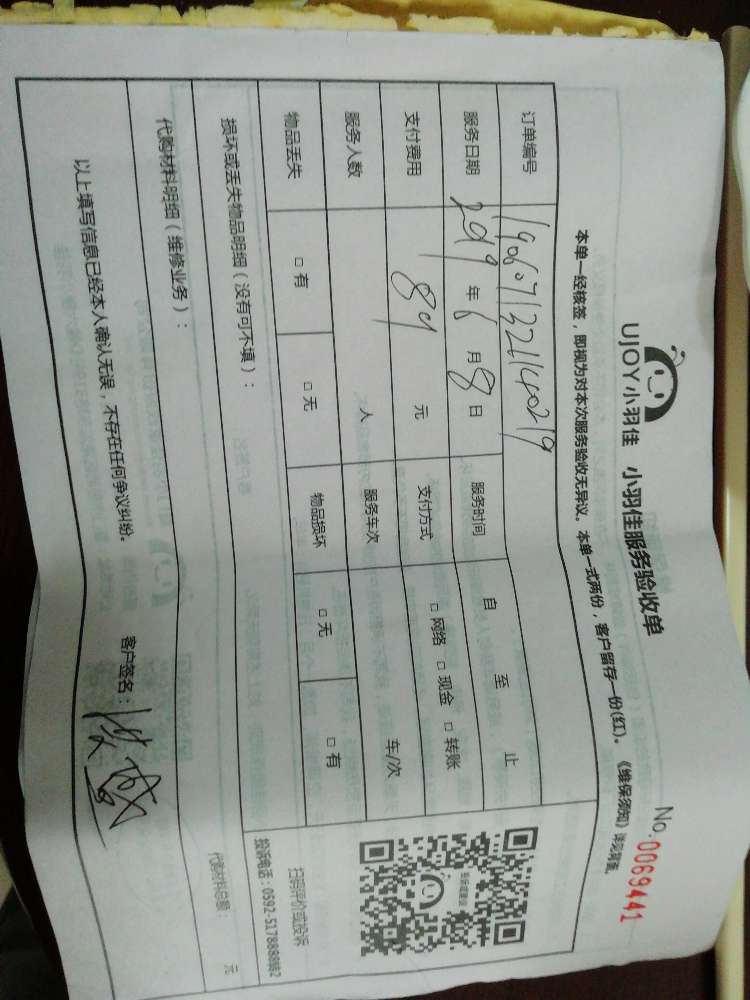 UJOY小羽佳 小羽佳服务验收单
No.0069441
本单一经核签，即视为对本次服务验收无异议。本单一式两份，客户留存一份(红)。《维保须知》详见背面。
订单编号
服务日期 2019年6月8日 服务时间 自 至 止
支付费用 89 元 支付方式 □网络 □现金 □转账
服务人数 人 服务车次 车/次
物品丢失 □有 □无 物品损坏 □无 □有
损坏或丢失物品明细（没有可不填）：
扫码评价或投诉
投诉电话：0592-5178888转2
代购材料明细（维修业务）：
代购材料总额： 元
以上填写信息已经本人确认无误，不存在任何争议纠纷。
客户签名：